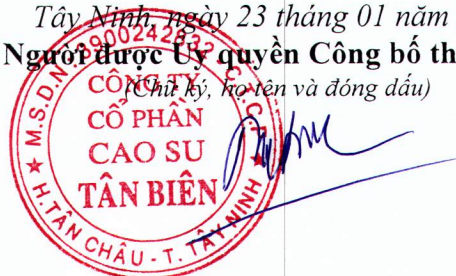 Tây Ninh, ngày 23 tháng 01 năm
Người được Ủy quyền Công bố th
(Chữ ký, họ tên và đóng dấu)
M.S.D.N: 3900242832 - C.T.C.P
CÔNG TY
CỔ PHẦN
CAO SU
TÂN BIÊN
H.TÂN CHÂU - T. TÂY NINH